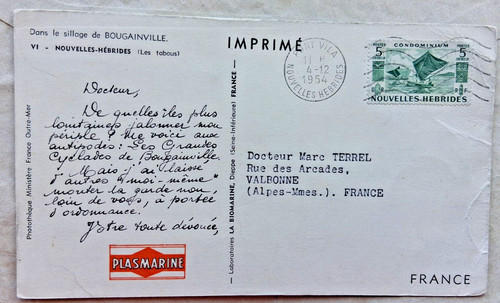 Dans le sillage de BOUGAINVILLE.
VI - NOUVELLES-HÉBRIDES (Les tabous)
Docteur,
De quelles îles plus
lointaines jalonner mon
périple ? Me voici aux
antipodes : Les Grandes
Cyclades de Bougainville.
Mais j'ai laissé
d'autres "moi-même"
monter la garde non
loin de vous, à portée
d'ordonnance.
Votre toute dévouée,
PLASMARINE
Photothèque Ministère France Outre-Mer
Laboratoires LA BIOMARINE, Dieppe (Seine-Inférieure) FRANCE
IMPRIMÉ
PORT VILA
11 H
4-12
1954
NOUVELLES HEBRIDES
POSTES
CONDOMINIUM
5
5
NOUVELLES-HEBRIDES
Docteur Marc TERREL
Rue des Arcades,
VALBONNE
(Alpes-Mmes.). FRANCE
FRANCE